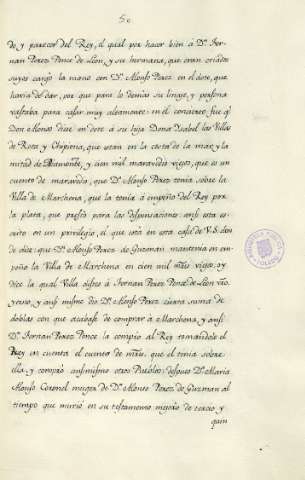 50
do y parecer del Rey, el qual por hacer bien á Dⁿ. Fer-
nan Perez Ponce de Leon, y su hermana, que eran criados
suyos cargó la mano con Dⁿ. Alonso Perez en el dote, que
havia de dar, por que para lo demás su linage, y persona
vastaba para casar muy altamente: en el concierto fue qᵉ
Don Alonso diese en dote á su hija Doña Isabel las Villas
de Rota y Chipiona, que estan en la costa de la mar, y la
mitad de y cien mil maravedis viejos, que es un
cuento de maravedis, que Dⁿ. Alonso Perez tenia sobre la
Villa de Marchena, que la tenia á empeño del Rey por
la plata, que prestó para las dispensaciones: ansi esta es-
crito en un privilegio, el que está en esta casa de V.S. don
de dice: que Dⁿ. Alonso Perez de Guzman mantenia en em-
peño la Villa de Marchena en cien mil mrs viejos, y
dice la qual Villa disteis á Fernan Perez Ponce de Leon
yerno, y ansi mismo dio Dⁿ. Alonso Perez cierta suma de
doblas con que acabase de comprar á Marchena, y ansi
Dⁿ. Fernan Perez Ponce la compró al Rey tomandole el
Rey en cuenta el cuento de mrs. que el tenia sobre
ella, y compró ansimismo otros Pueblos: despues Dª. Maria
Alonso Coronel muger de Dⁿ. Alonso Perez de Guzman al
tiempo que murió en su testamento mejoró de tercio, y
quin